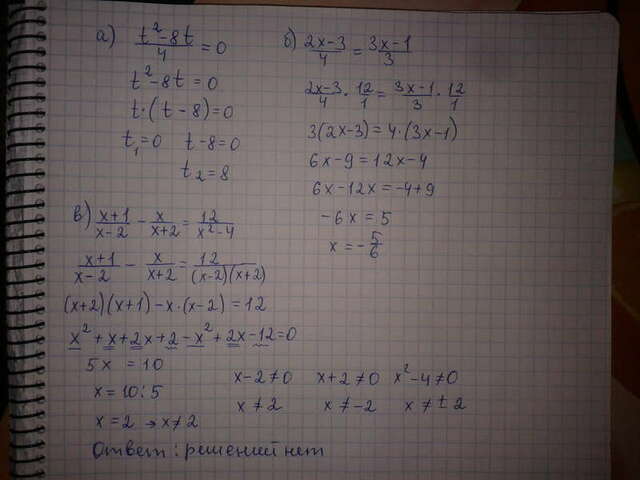 а) (t²-8t)/4 = 0
t²-8t = 0
t·(t-8)=0
t₁=0 t-8=0
t₂=8
б) (2x-3)/4 = (3x-1)/3
(2x-3)/4 · 12/1 = (3x-1)/3 · 12/1
3(2x-3)=4·(3x-1)
6x-9=12x-4
6x-12x=-4+9
-6x=5
x=-5/6
в) (x+1)/(x-2) - x/(x+2) = 12/(x²-4)
(x+1)/(x-2) - x/(x+2) = 12/((x-2)(x+2))
(x+2)(x+1)-x·(x-2)=12
x²+x+2x+2-x²+2x-12=0
5x =10
x=10:5
x=2 → x≠2
x-2≠0 x+2≠0 x²-4≠0
x≠2 x≠-2 x≠±2
Ответ: решений нет